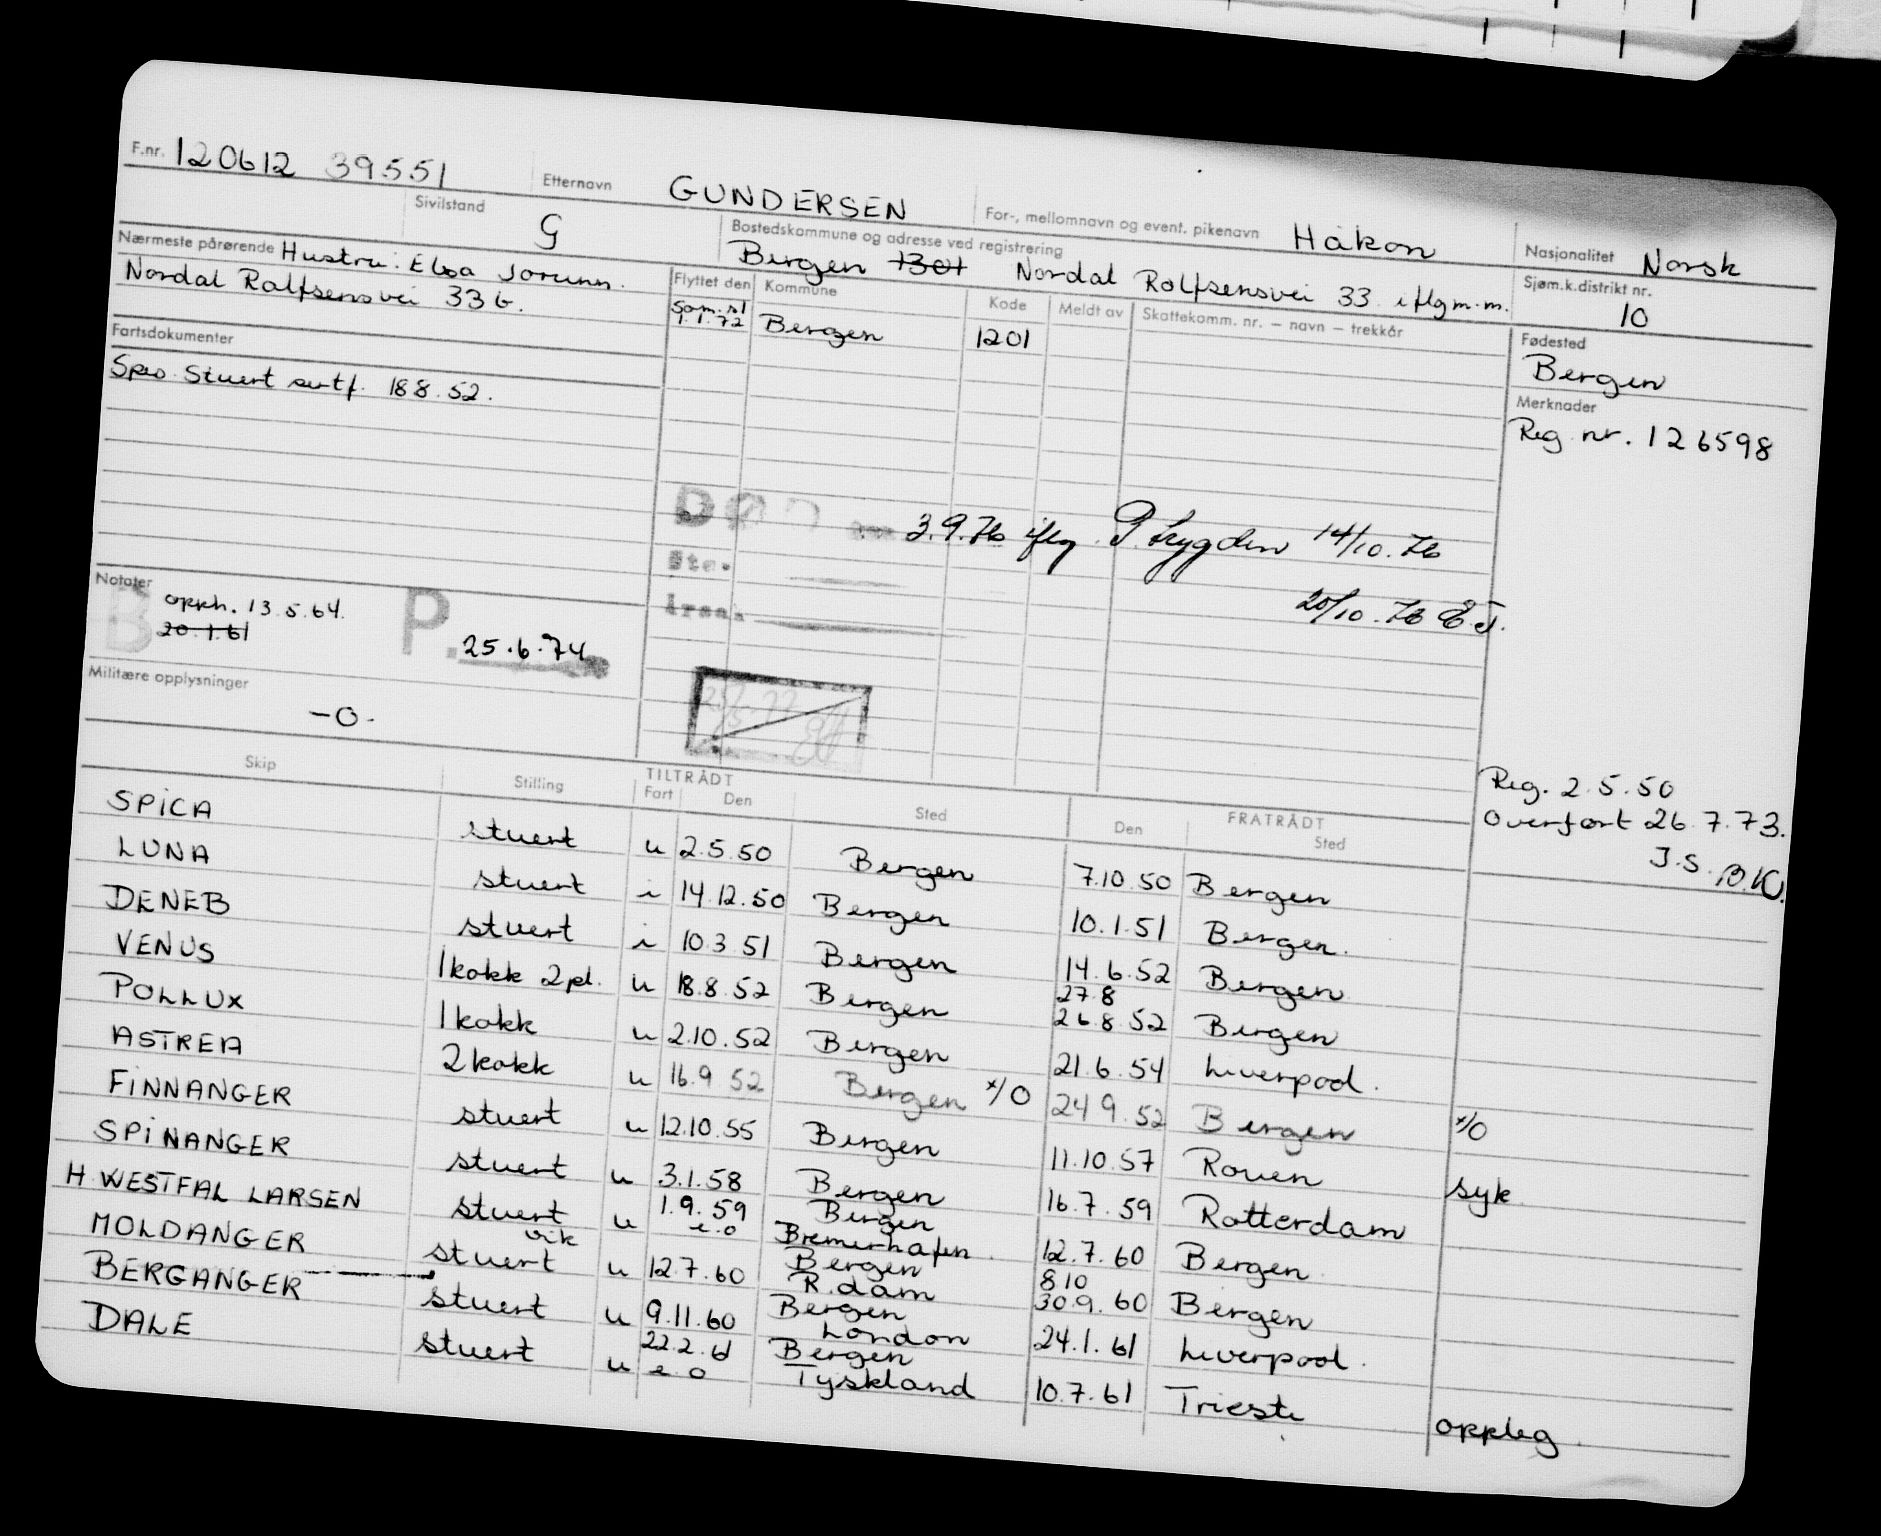 F.nr. 120612 39551 Etternavn GUNDERSEN For-, mellomnavn og event. pikenavn Håkon Nasjonalitet Norsk
Sivilstand G Bostedskommune og adresse ved registrering Sjøm.k.distrikt nr.
Bergen 1301 Nordal Rolfsensvei 33 iflg m.m. 10
Nærmeste pårørende Hustru: Elsa Jorunn.
Nordal Rolfsensvei 33 b.
Flyttet den Kommune Kode Meldt av Skattekomm. nr. – navn – trekkår
Sam.sl
1.1.72 Bergen 1201
Fødested
Bergen
Fartsdokumenter
Spes. Stuert sertf. 18 8. 52.
Merknader
Reg. nr. 126598
DØD den 3.9.76 iflg. P. trygden 14/10.76
Ste.
Årsak
20/10.76 E.J.
Notater
B opph. 13.5.64.
20.1.61
P. 25.6.74
Militære opplysninger
-0-
Reg. 2.5.50
Overført 26.7.73.
J.S. B.K.
Skip Stilling TILTRÅDT FRATRÅDT
Fart Den Sted Den Sted
SPICA stuert u 2.5.50 Bergen 7.10.50 Bergen
LUNA stuert i 14.12.50 Bergen 10.1.51 Bergen.
DENEB stuert i 10.3.51 Bergen 14.6.52 Bergen
27.8
VENUS 1 kokk 2pl. u 18.8.52 Bergen 26.8.52 Bergen
POLLUX 1 kokk u 2.10.52 Bergen 21.6.54 Liverpool.
ASTREA 2 kokk u 16.9 52 Bergen */O 24 9.52 Bergen */O
FINNANGER stuert u 12.10.55 Bergen 11.10.57 Rouen syk
SPINANGER stuert u 3.1.58 Bergen 16.7.59 Rotterdam
H. WESTFAL LARSEN stuert u 1.9.59 Bergen 12.7.60 Bergen
e.o Bremerhafen.
MOLDANGER vik stuert u 12.7.60 Bergen 8 10
R.dam 30.9.60 Bergen
BERGANGER stuert u 9.11.60 Bergen 24.1.61 Liverpool.
London
DALE stuert u 22.2.61 Bergen 10.7.61 Trieste oppleg.
e.o Tyskland